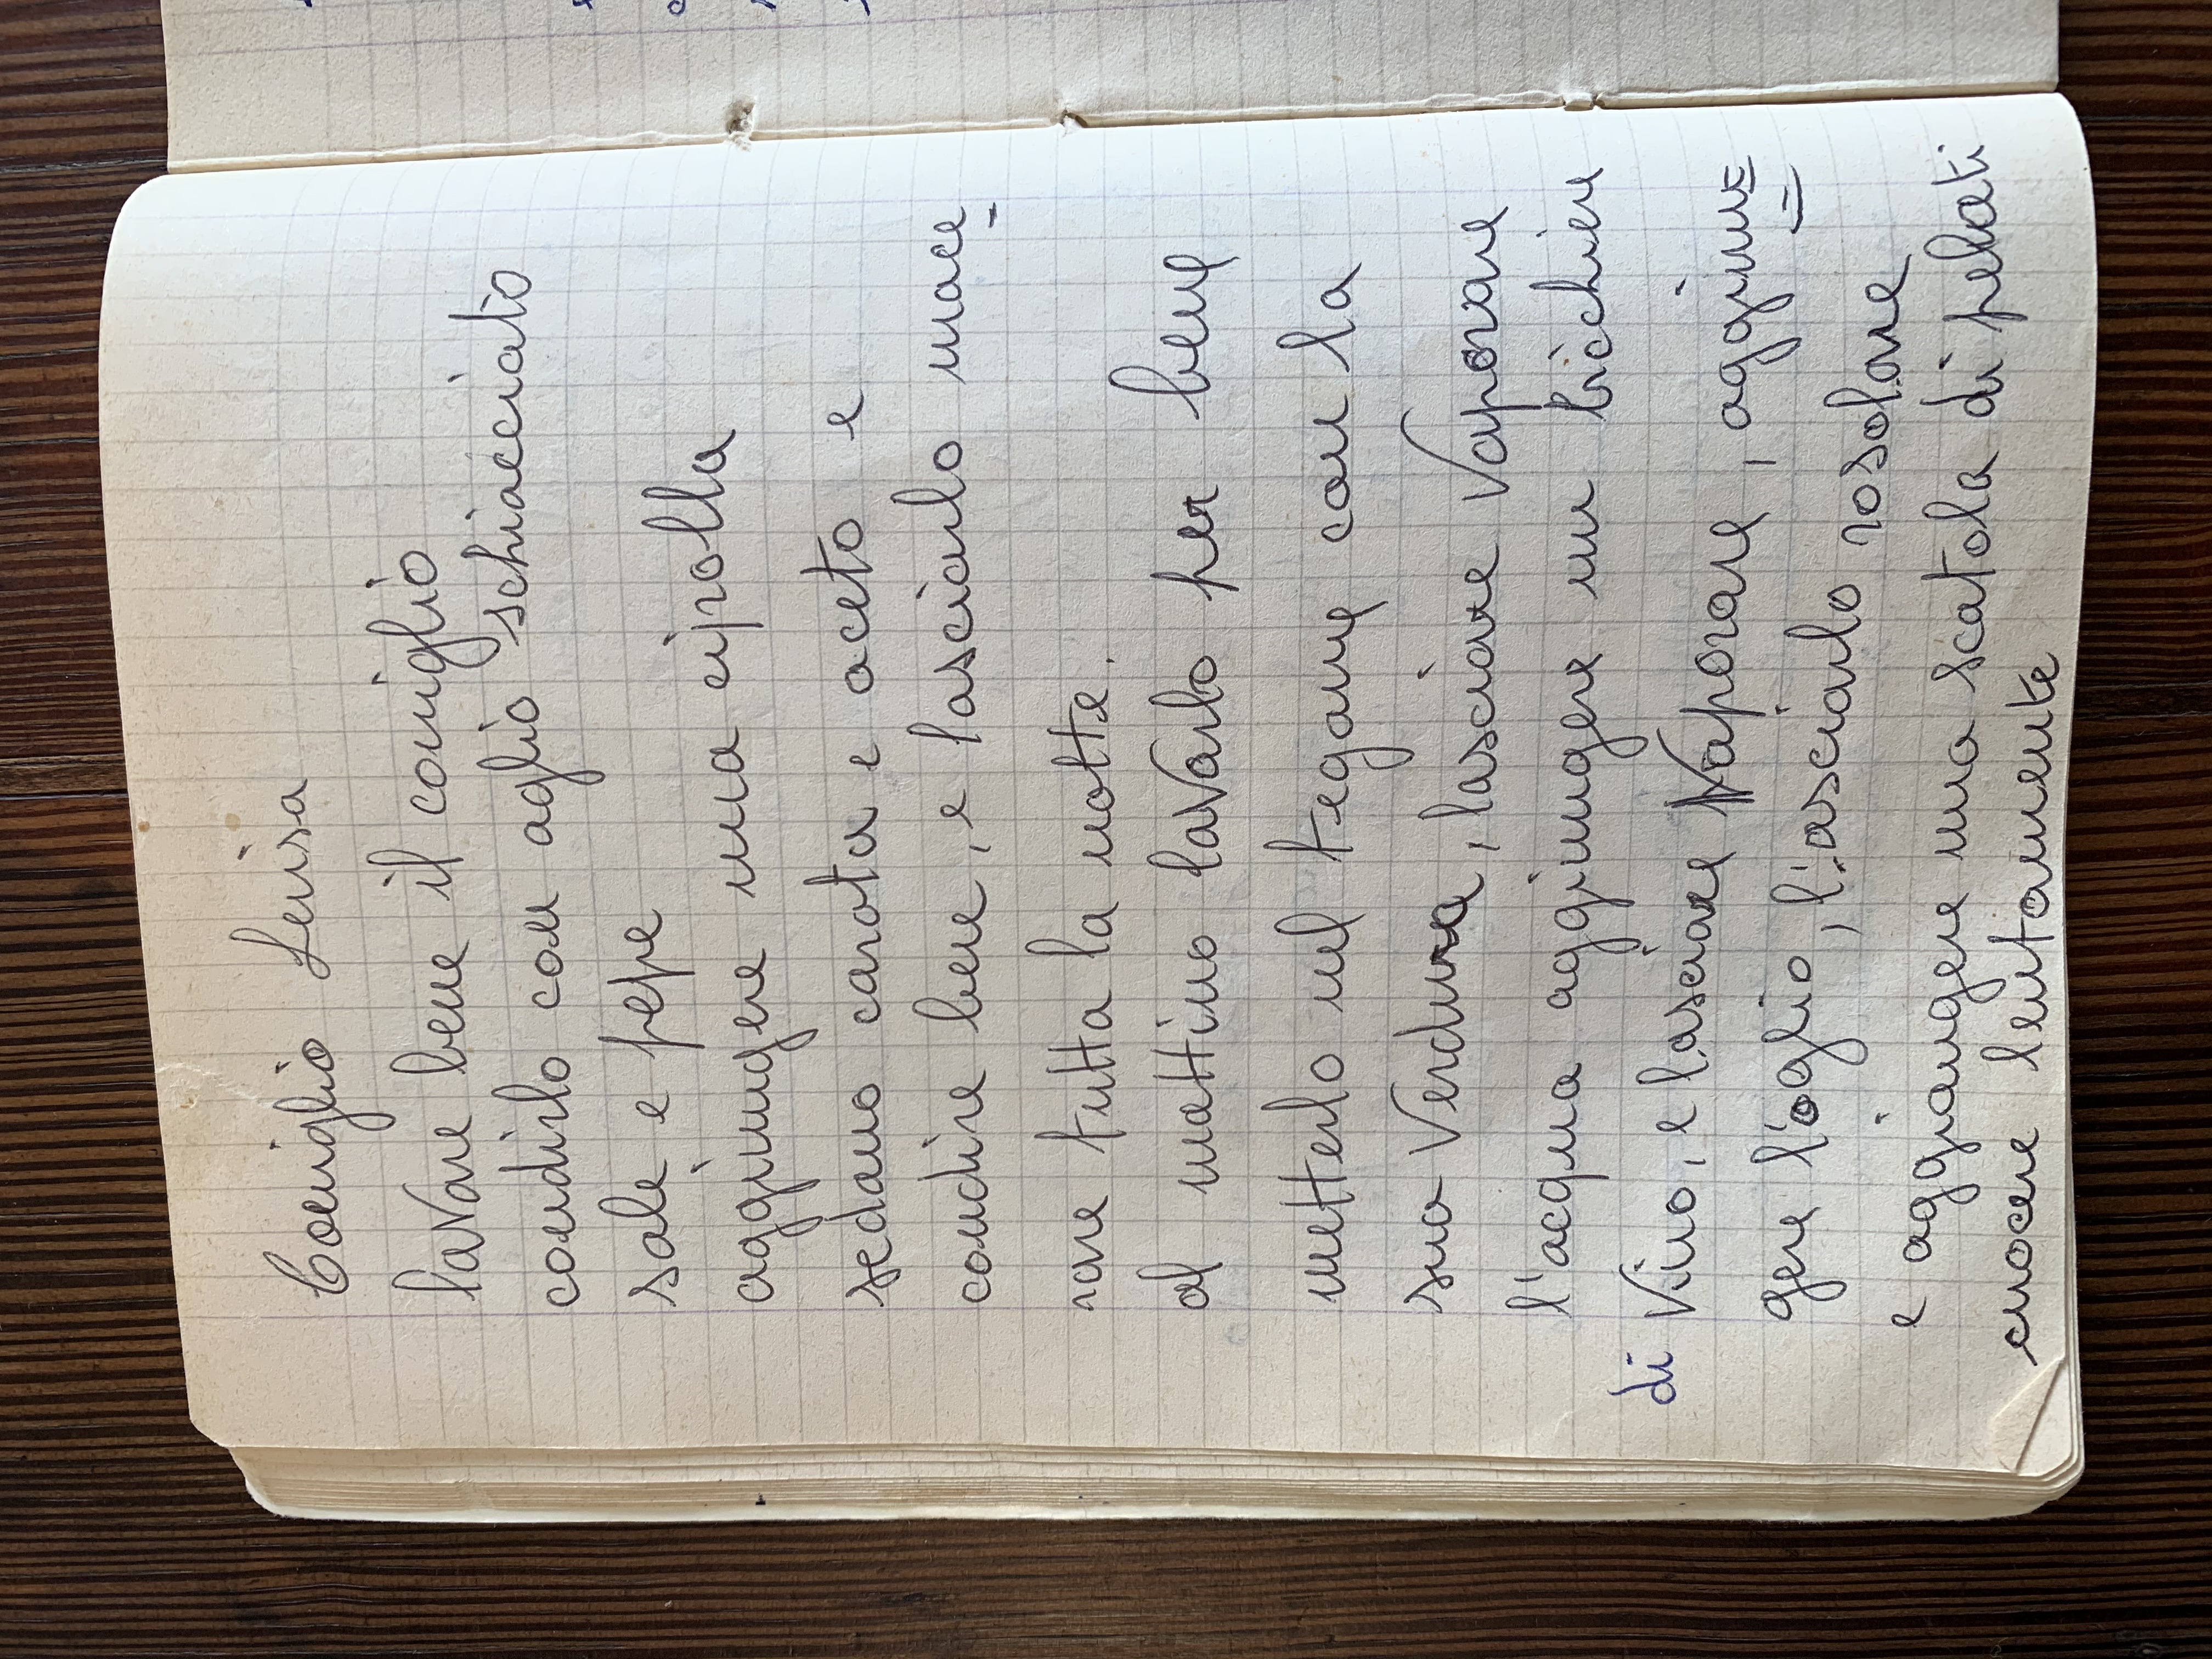 Coniglio Luisa
lavare bene il coniglio
condirlo con aglio schiacciato
sale e pepe
aggiungere una cipolla
sedano carota e aceto e
condire bene, e lasciarlo mace
rare tutta la notte.
al mattino lavarlo per bene
metterlo nel tegame con la
sua Verdura, lasciare Vaporare
l'acqua aggiungere un bicchiere
di Vino, e lasciare Vaporare, aggiun=
gere l'oglio, l'asciarlo rosolare
e aggiangere una scatola di pelati
cuocere lentamente